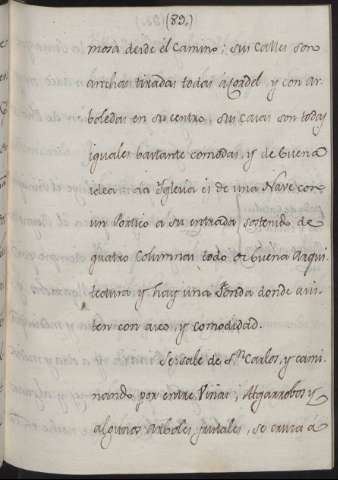 (89,)
mosa desde el Camino; sus calles son
anchas tiradas todas a Cordel y con ar-
boledas en su centro, sus casas son todas
iguales bastante comodas, y de buena
idea la Iglesia es de una Nave con
un Portico a su entrada sostenido de
quatro Columnas todo de buena Arqui
tectura y hay una fonda donde asis-
ten con aseo, y comodidad.
Se sale de Sn. Carlos, y cami
nando por entre Viñas, Algarrobos y
algunos Arboles frutales, se cruza á